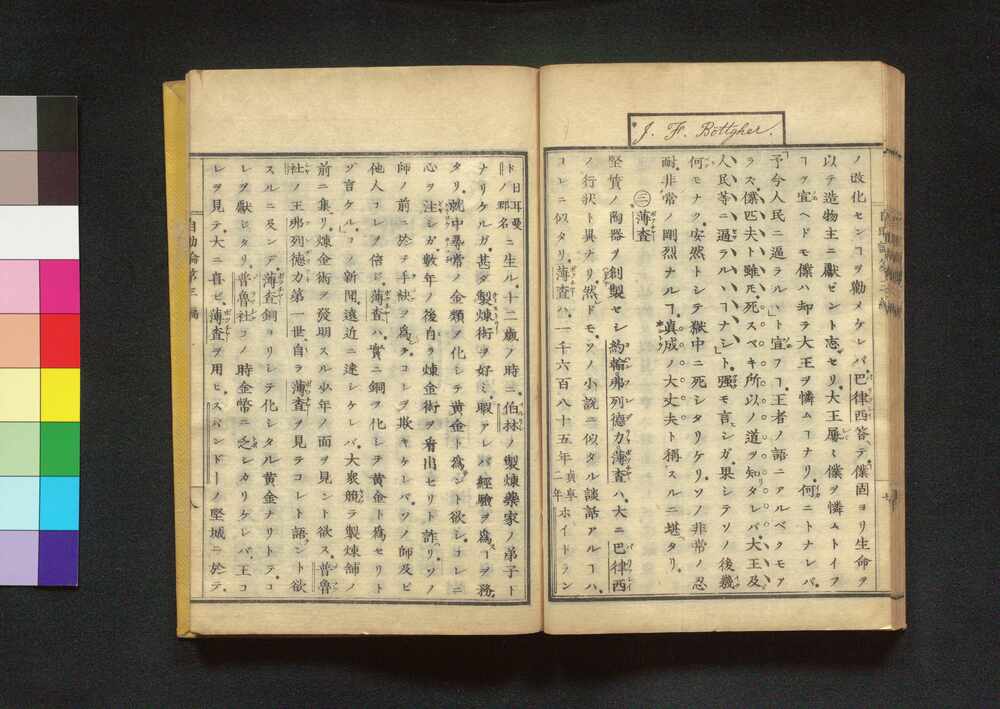 J. F. Böttgher.
ノ改化センヿヲ勸メケレバ巴律西答テ僕固ヨリ生命ヲ
以テ造物主ニ獻ゼント志セリ大王屢〻僕ヲ憐ムトイフ
ヿヲ宣ヘドモ僕ハ却ラ大王ヲ憐ムヿナリ何ニトナレバ
予今人民ニ逼ラルト宣フヿ王者ノ語ニアルベクモア
ラズ僕匹夫ト雖モ死スベキ所以ノ道ヲ知タレバ大王及
人民等ニ逼ラルヽヿナシト强モ言シガ果シテソノ後幾
何モナク安然トシテ獄中ニ死シタリケリソノ非常ノ忍
耐非常ノ剛烈ナルヿ眞成ノ大丈夫ト稱スルニ堪タリ
㊂薄査
堅質ノ陶器ヲ創製セシ約翰弗列德力薄査ハ大ニ巴律西
ノ行狀ト異ナリ然ドモソノ小說ニ似タル談話アルヿハ
コレニ似タリ薄査ハ一千六百八十五年貞享二年ホイドラン
ド日耳曼ノ郡名ニ生ル十二歲ノ時ニ伯林ノ製煉藥家ノ弟子ト
ナリケルガ甚ダ製煉術ヲ好ミ暇アレバ經驗ヲ爲ヿヲ務
タリ就中尋常ノ金類ヲ化シテ黃金ト爲ント欲シコレニ
心ヲ注シガ數年ノ後自ラ煉金術ヲ看出セリト詐リソノ
師ノ前ニ於テ手訣ヲ爲テコレヲ欺キケレバソノ師及ビ
他人コレヲ信ジ薄査ハ實ニ銅ヲ化シテ黃金ト爲セリト
ゾ言ケルコノ新聞遠近ニ達シケレバ大衆競ラ製煉舖ノ
前ニ集リ煉金術ヲ發明スル少年ノ面ヲ見ント欲ス普魯
社ノ王弗列德力第一世自ラ薄査ヲ見テコレト語ント欲
スルニ及ンデ薄査銅ヨリシテ化シタル黃金ナリトテコ
レヲ獻ジタリ普魯社コノ時金幣ニ乏シカリケレバ王コ
レヲ見テ大ニ喜ビ薄査ヲ用ヒスパンドーノ堅城ニ於テ
自助論第三編
八